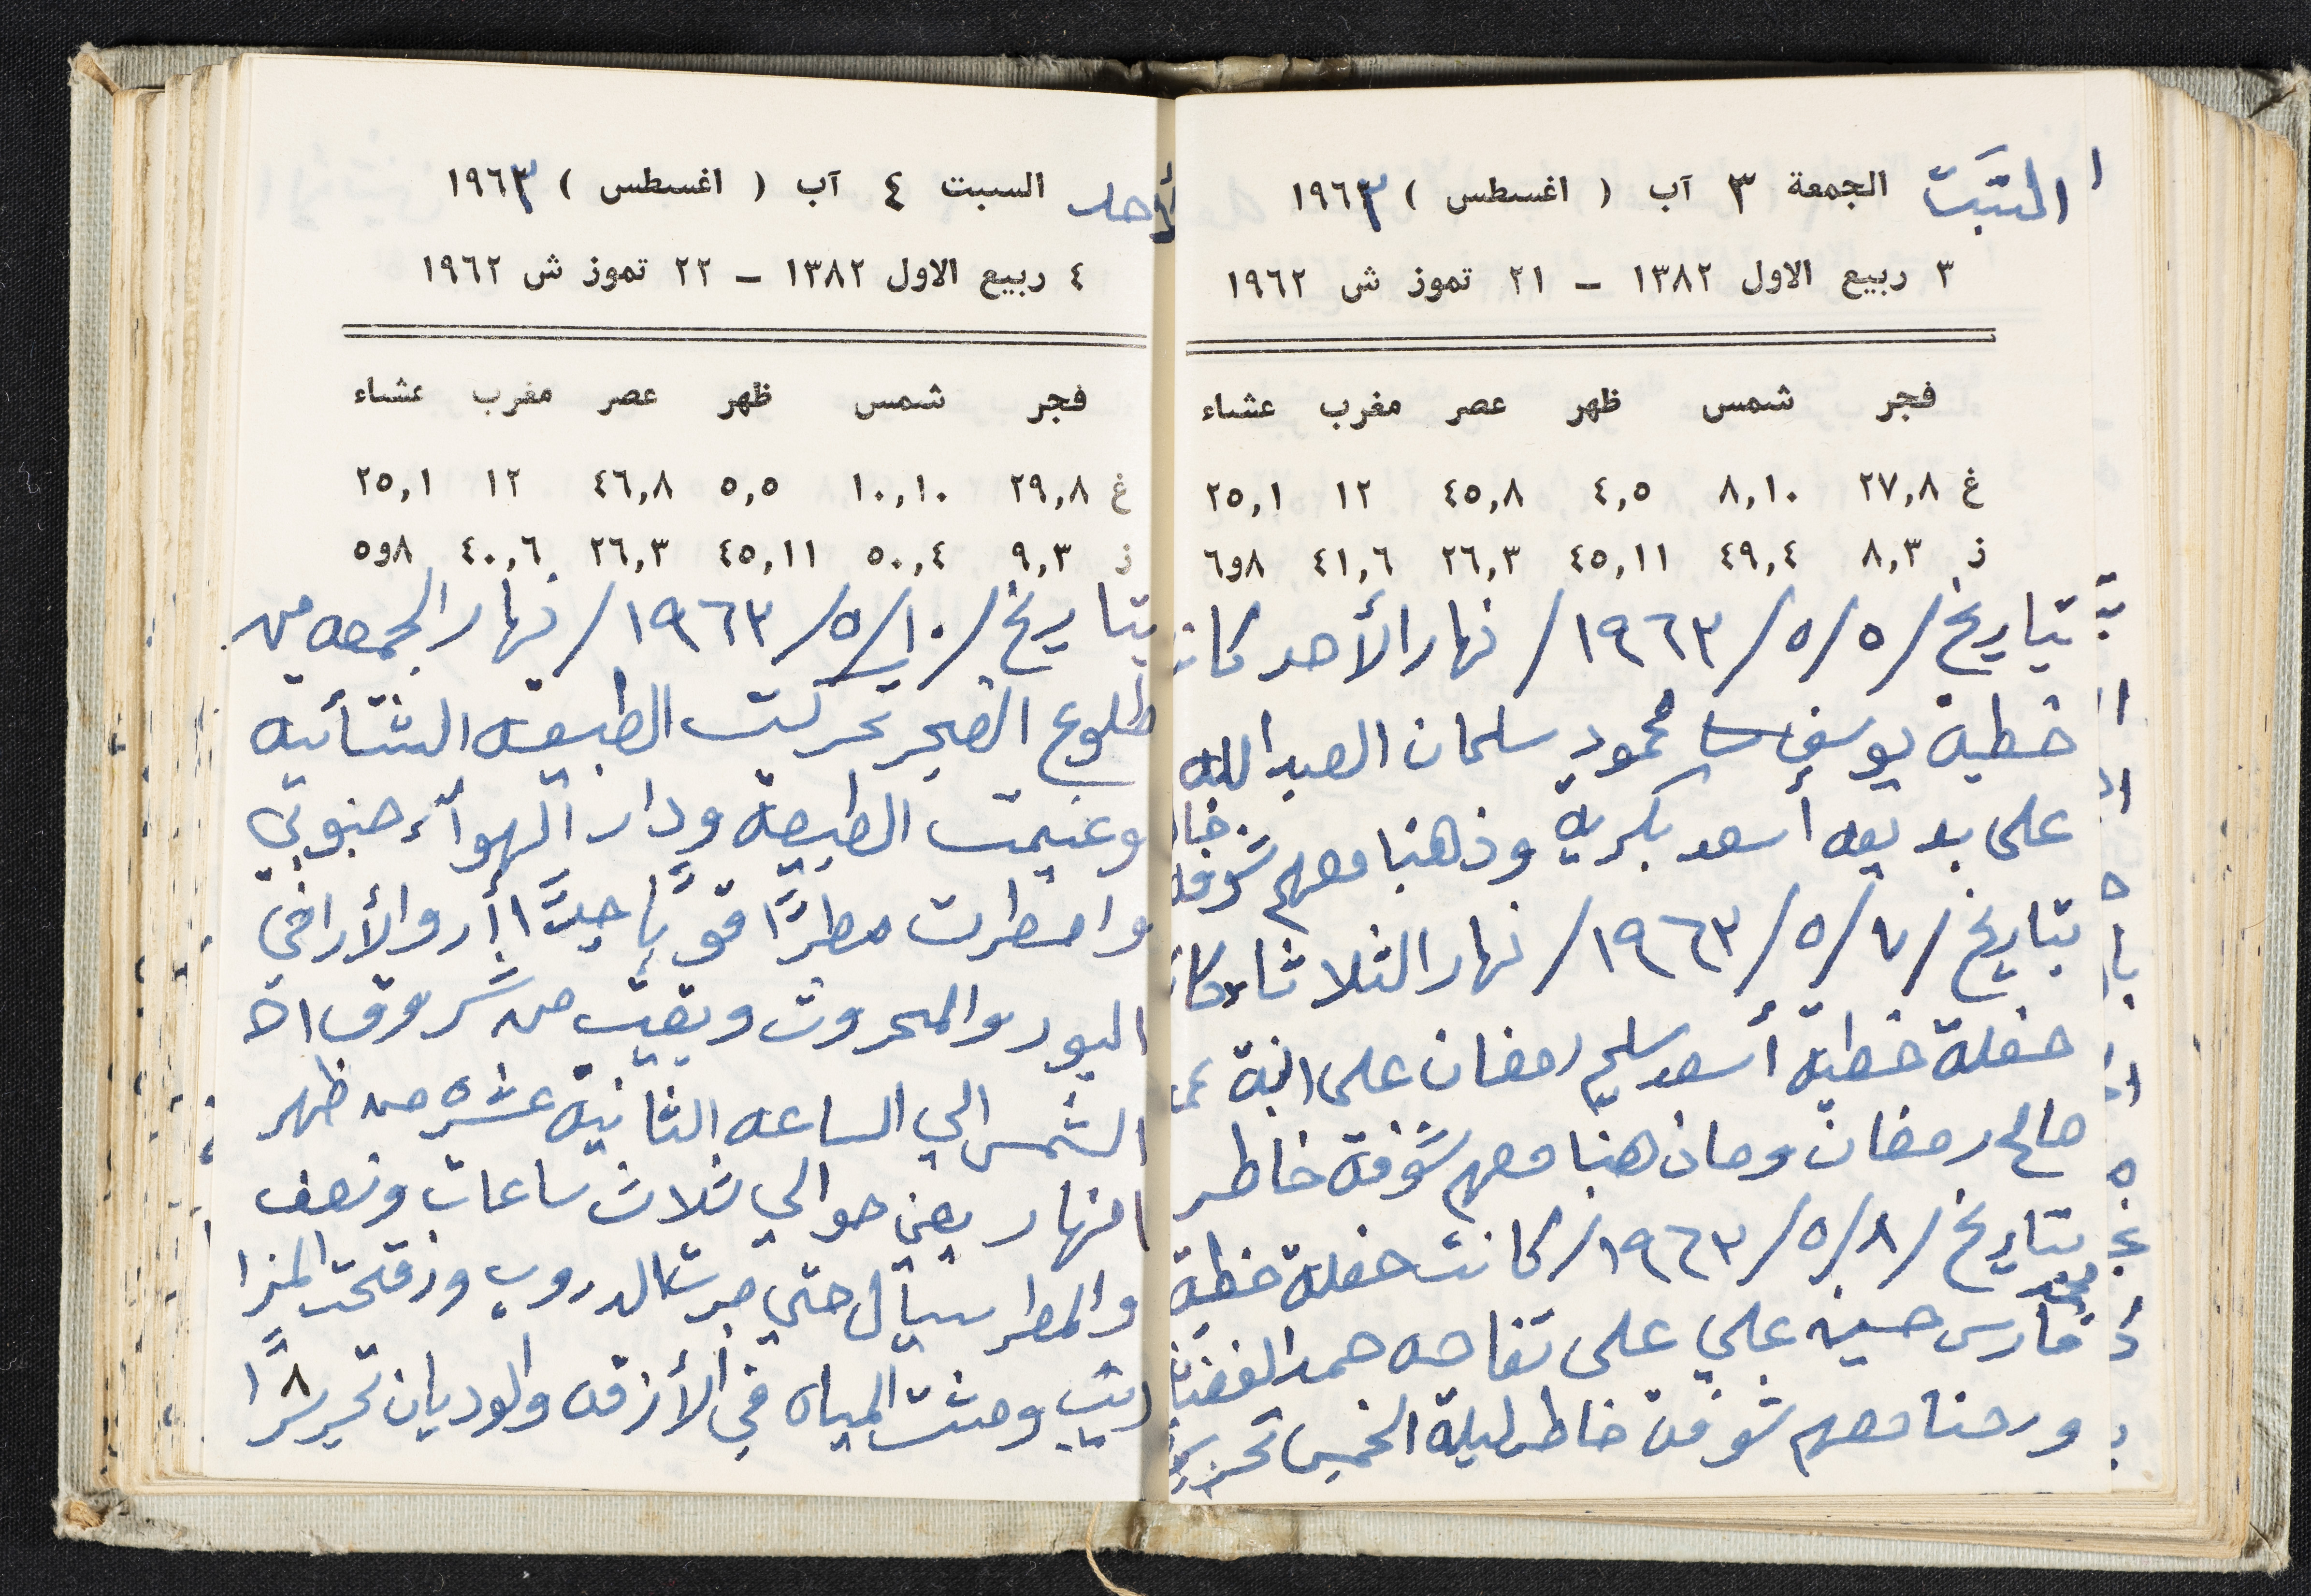 السَّبت الجمعة ٣ آب ( اغسطس ) ١٩٦٣
٣ ربيع الاول ١٣٨٢ – ٢١ تموز ش ١٩٦٢
فجر شمس ظهر عصر مغرب عشاء
غ ٢٧,٨ ٨,١٠ ٤,٥ ٤٥,٨ ١٢ ٢٥,١
ذ ٨,٣ ٤٩,٤ ٤٥,١١ ٢٦,٣ ٤١,٦ ٨و٦
بتاريخ /٥/٥/١٩٦٣/ نهار الأحد كانت
خطبة يوسف محمود سلمان العبدالله
على بديعه أسعد بكرية وذهبنا معهم شوفة خاطر
بتاريخ /٧/٥/١٩٦٣/ نهار الثلاثاء كانت
حفلة خطبة أسعد سليم رمضان على ابنة
صالح رمضان وماذهبنا معهم شوفة خاطر
بتاريخ /٨/٥/١٩٦٣/ كانت حفلة خطبة
محمد
فارس حسين علي على تفاحه حمد
ورحنا معهم شوفة خاطر ليلة الخميس تحريرًا
الأحد السبت ٤ آب ( اغسطس ) ١٩٦٣
٤ ربيع الاول ١٣٨٢ – ٢٢ تموز ش ١٩٦٢
فجر شمس ظهر عصر مغرب عشاء
غ ٢٩,٨ ١٠,١٠ ٥,٥ ٤٦,٨ ١٢ ٢٥,١
ذ ٩,٣ ٥٠,٤ ٤٥,١١ ٢٦,٣ ٤٠,٦ ٨و٥
بتاريخ /١٠/٥/١٩٦٣/ نهار الجمعه من
طلوع الفجر تحركت الطبيعه الشتأيه
وغيمت الطبيعة ودار الهوآء جنوبي
وامطرت مطرًا قويًّا جدًّا أروالأراضي
البور والمحروث وبقيت من شروق اذ
الشمس الي الساعه الثانية عشره من ظهر
انهار يعني حوالي ثلاث ساعات ونصف
والمطر سيآل حتي جرت الدروب وزقحت المزا
ريب ومشت المياه في الأزقه والوديان تحريرًا ٨